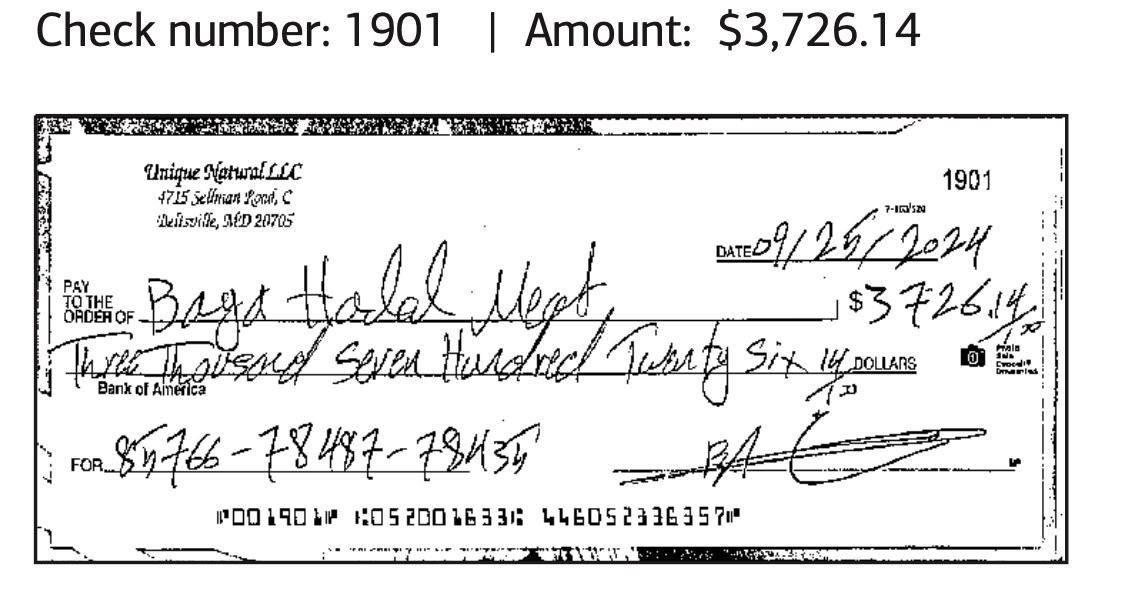 Check number: 1901 | Amount: $3,726.14
Unique Natural LLC
4715 Sellman Road, C
Beltsville, MD 20705
1901
7-163/520
DATE 09/25/2024
PAY TO THE ORDER OF Baga Halal Meat $3726.14/100
Three Thousand Seven Hundred Twenty Six 14/100 DOLLARS
Photo Safe Deposit
Bank of America
FOR 85766-78487-78435
MP
⑈001901⑈ ⑆052001633⑆ 446052336357⑈